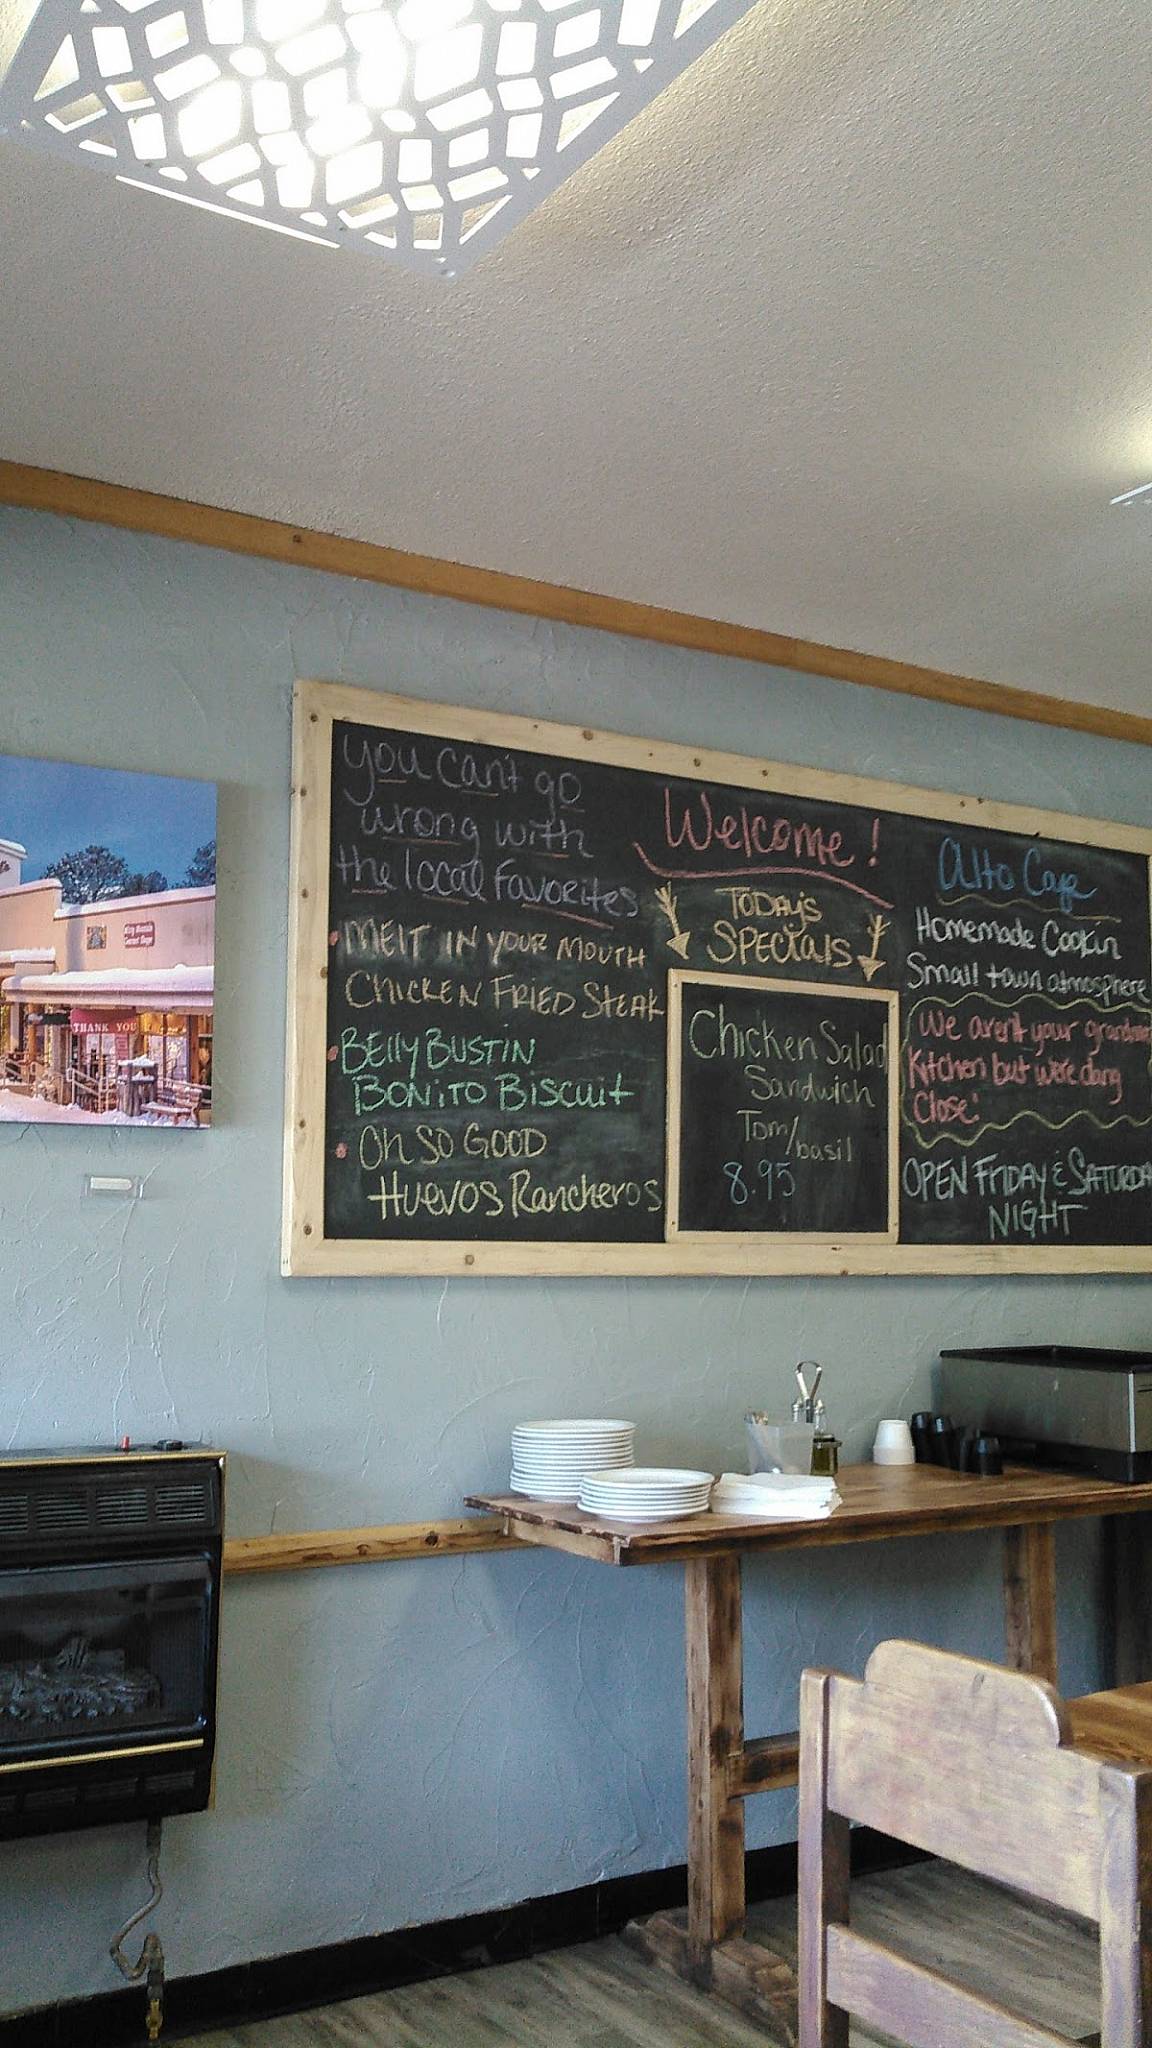 You can't go
wrong with
the local Favorites
MELT IN YOUR MOUTH
CHICKEN FRIED STEAK
BELLY BUSTIN
BONITO BISCUIT
Oh SO GOOD
HUEVOS Rancheros
Welcome!
TODAY'S
SPECIALS
Chicken Salad
Sandwich
Tom/basil
8.95
Alto Cafe
Homemade Cookin
Small town atmosphere
We aren't your grandma
Kitchen but were dang
Close!
OPEN FRIDAY & SATURDA
NIGHT
THANK YOU